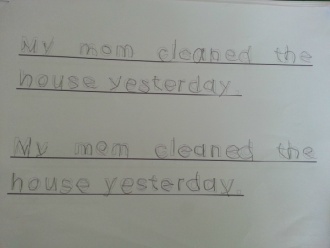 My mom cleaned the
house yesterday.
My mom cleaned the
house yesterday.